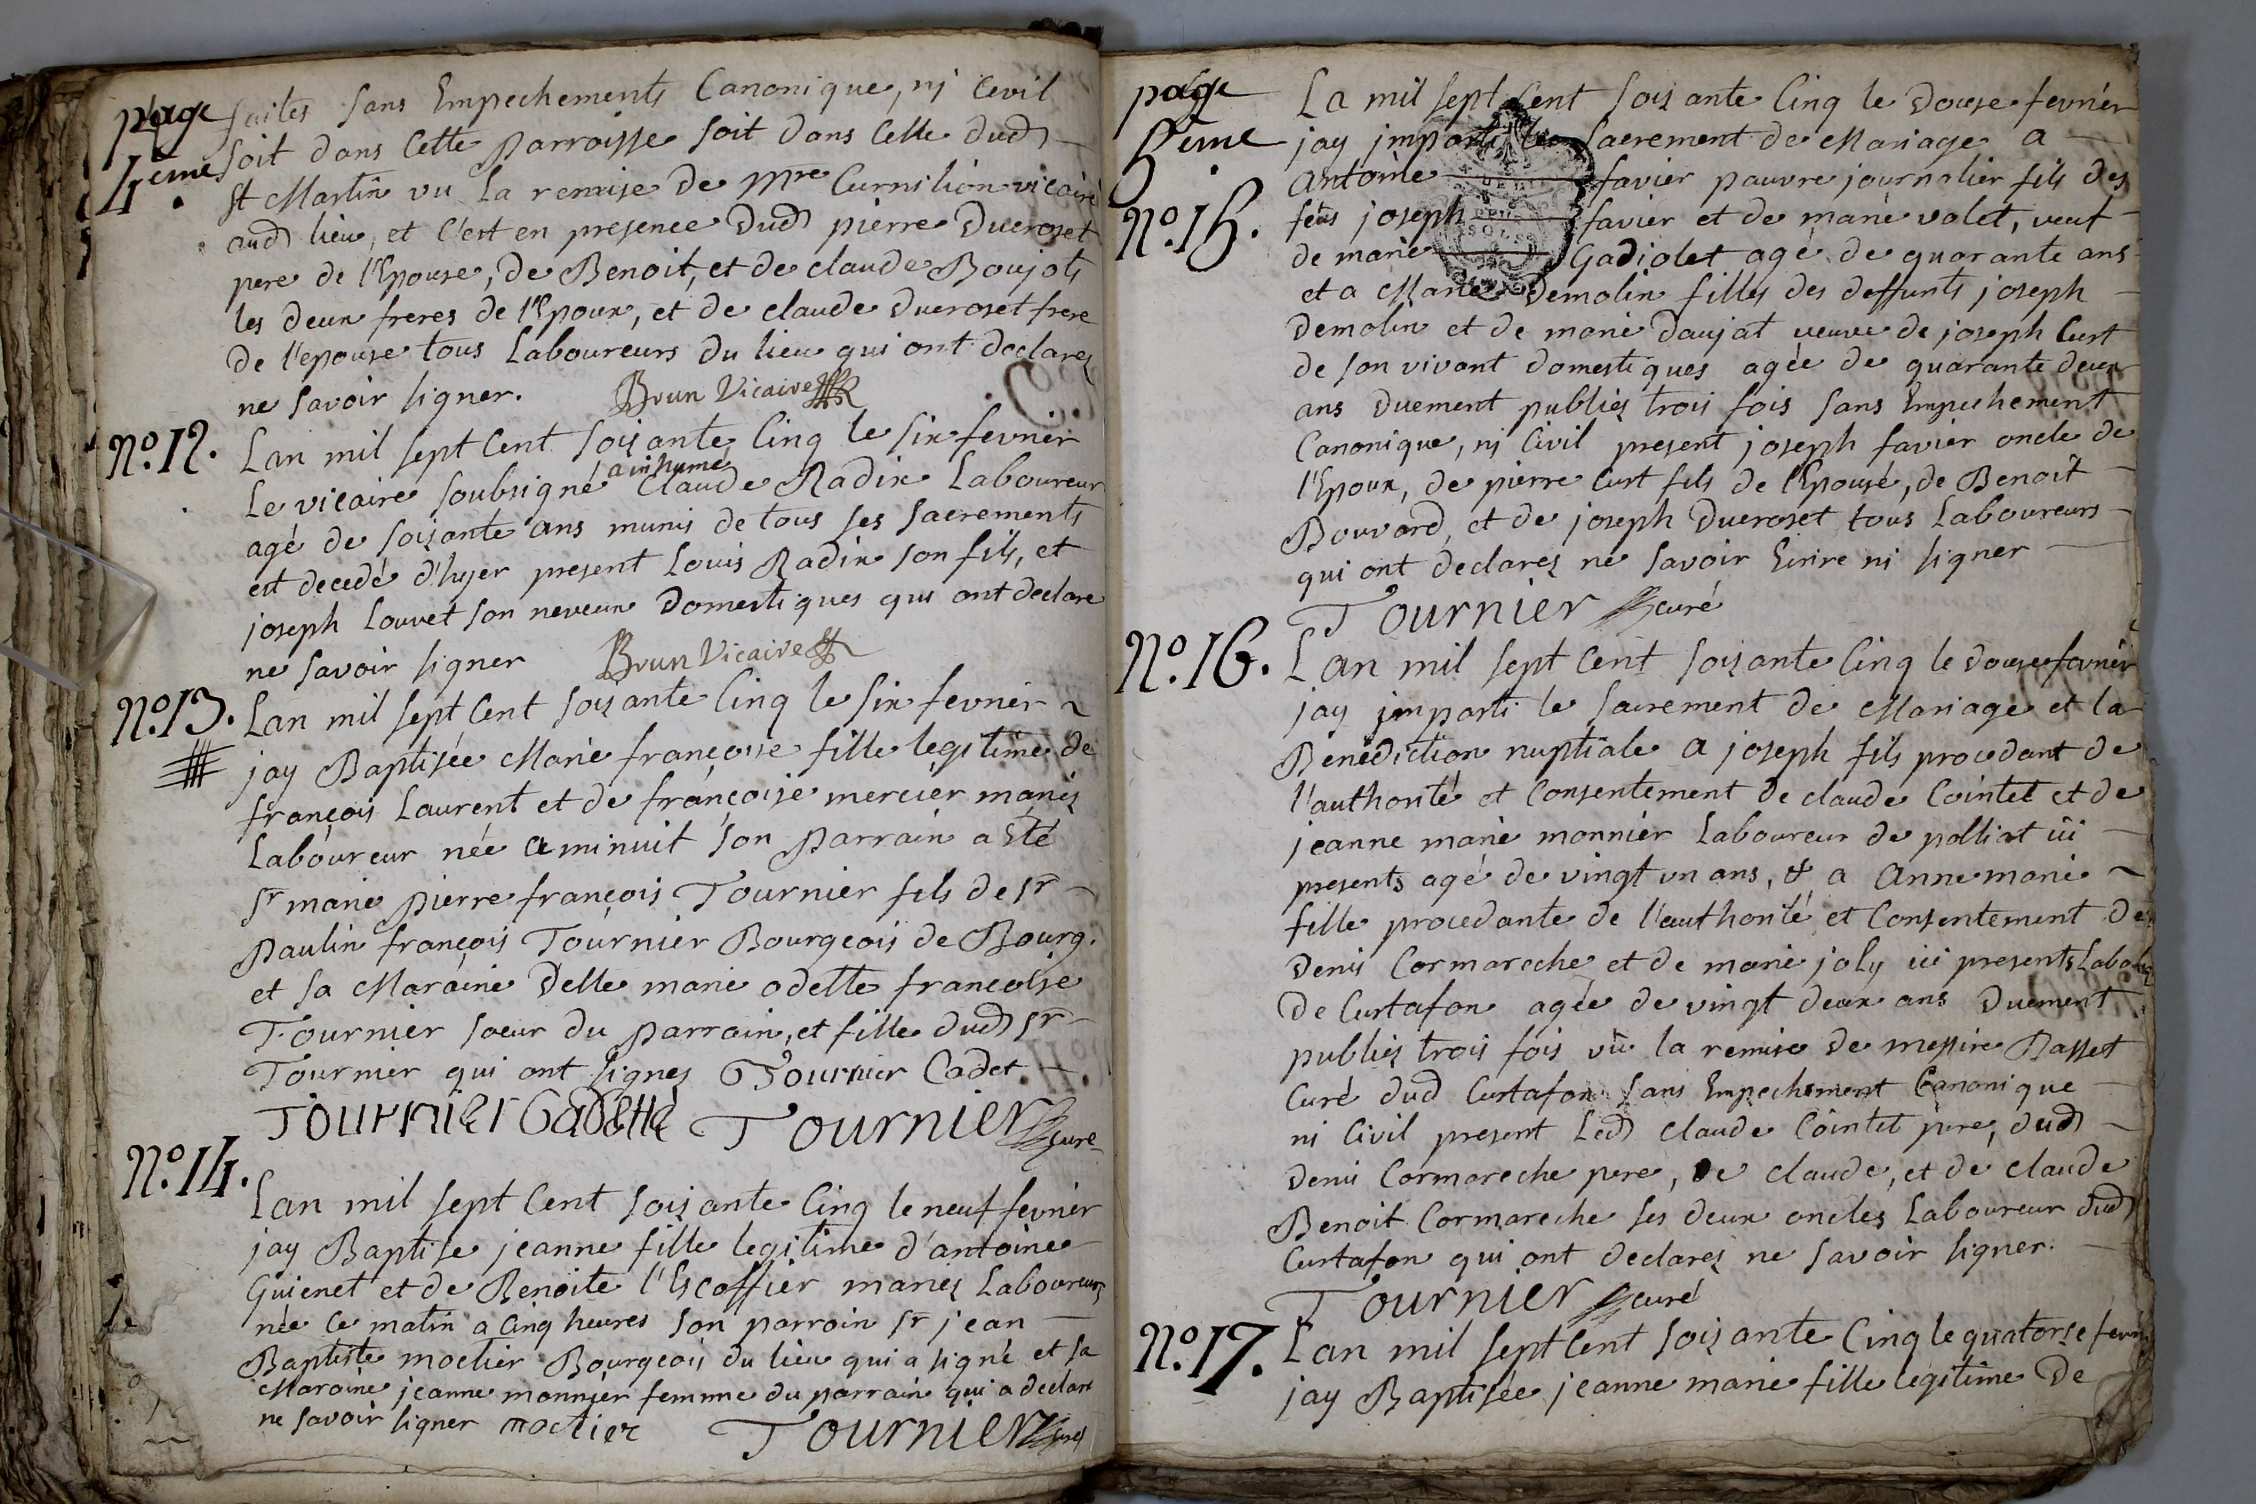 page
4eme.
faites sans Empechements Canonique, nj Cevil
soit dans Cette Parroisse soit dans Celle dud
st Martin vu la remise de Mre Curnilion vicaire
aud lieu, et C'est en presence dud pierre Ducroset
pere de l'Epouse, de Benoit, et de claude Boujots
les deux freres de l'Epoux, et de claude ducroset frere
de l'epouse tous Laboureurs du lieu qui ont declarez
ne savoir signer. Brun Vicaire
No.12.
Lan mil sept Cent soixante Cinq le six fevrier
Le vicaire soubsigné a inhumé Claude Radix Laboureur
agé de soixante ans munis de tous ses sacrements
est decedé d'hyer present Louis Radix son fils, et
joseph Louvet son neveux Domestiques qui ont declare
ne savoir signer Brun Vicaire
No.13.
Lan mil sept Cent soixante Cinq le six fevrier
jay Baptisée Marie françoise fille legitime de
françois Laurent et de françoise mercier mariez
Laboureur née a minuit son Parrain a Eté
sr marie pierre françois Tournier fils de sr
Paulin françois Tournier Bourgeois de Bourg.
et sa Maraine Delle marie odette francoise
Tournier soeur du parrain, et fille dud sr
Tournier qui ont signez Tournier Cadet
Tournier Cadette Tournier curé
No.14.
Lan mil sept Cent soixante Cinq le neuf fevrier
jay Baptise jeanne fille legitime d'antoine
Guienet et de Benoite l'Escoffier mariez Laboureurs
née Ce matin a Cinq heures son parroin sr jean
Baptiste moctier Bourgeois du lieu qui a signé et sa
Maraine jeanne monnier femme du parrain qui a declaré
ne savoir signer moctier Tournier curé
page
5eme
No.15.
La mil sept Cent soixante Cinq le Douse fevrier
jay jmparti le sacrement de Mariage a
antoine favier pauvre journalier fils des
feus joseph favier et de marie valet, veuf
de marie Gadiolet agé de quarante ans
et a Marie Demolin filles des deffunts joseph
Demolin et de marie Daujat veuve de joseph Curt
de son vivant domestiques agée de quarante deux
ans Duement publiez trois fois sans Empechement
Canonique, nj Civil present joseph favier oncle de
l'Epoux, de pierre Curt fils de l'Epousé, de Benoit
Bouvard, et de joseph Ducroset tous Laboureurs
qui ont declarez ne savoir Ecrire ni signer
Tournier curé
No.16.
Lan mil sept Cent soixante Cinq le douse fevrier
jay jmparti le sacrement de Mariage et la
Benediction nuptiale a joseph fils procedant de
l'authorité et Consentement de claude Cointet et de
jeanne marie monnier Laboureur de polliat ici
presents agé de vingt un ans, & a anne marie
fille procedante de l'authorité et Consentement de
Denis Cormareche et de marie joly ici presents Labour
De Curtafon agée de vingt deux ans Duement
publiez trois fois vû la remise de messire Basset
Curé dud Curtafon sans Empechement Canonique
ni Civil present Led claude Cointet pere, dud
Denis Cormareche pere, De claude, et de claude
Benoit Cormareche ses deux oncles Laboureur dud
Curtafon qui ont declarez ne savoir signer.
Tournier curé
No.17.
Lan mil sept Cent soixante Cinq le quatorse fevri
jay Baptisée jeanne marie fille legitime De